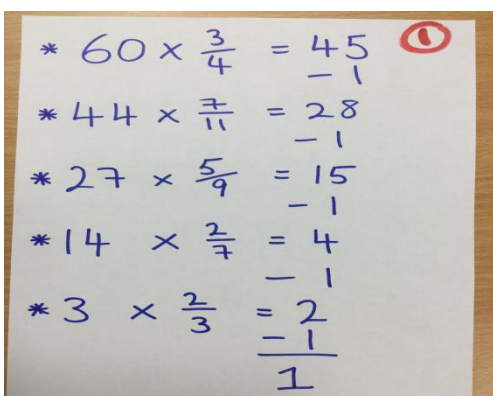 * 60 × 3/4 = 45 ①
- 1
* 44 × 7/11 = 28
- 1
* 27 × 5/9 = 15
- 1
* 14 × 2/7 = 4
- 1
* 3 × 2/3 = 2
- 1
1